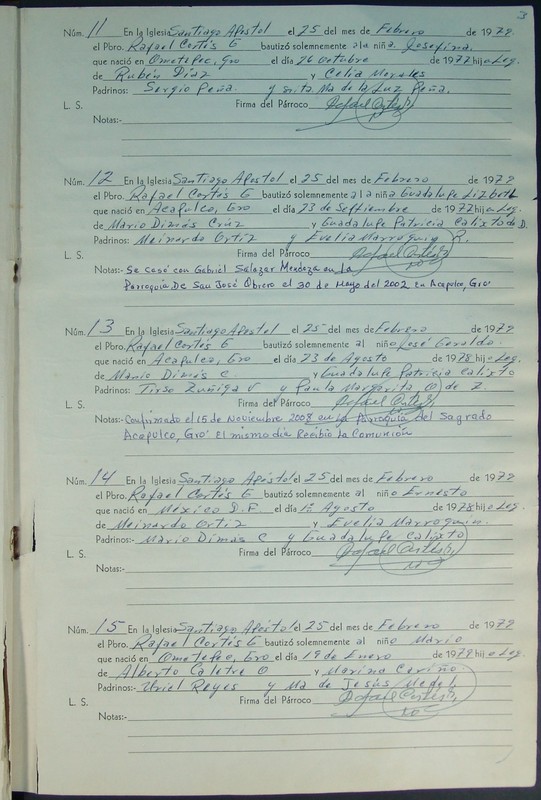 3
Núm. 11 En la Iglesia Santiago Apostol el 25 del mes de Febrero de 1979
el Pbro. Rafael Cortés G bautizó solemnemente a la niña Josefina.
que nació en Ometepec, Gro el día 26 Octubre de 1977 hija Leg.
de Rubén Díaz y Celia Morales
Padrinos: Sergio Peña. y Ma de la Luz Peña.
L. S. Firma del Párroco Rafael Cortés G.
Notas:-
Núm. 12 En la Iglesia Santiago Apostol el 25 del mes de Febrero de 1979
el Pbro. Rafael Cortés G bautizó solemnemente a la niña Guadalupe Lizbeth
que nació en Acapulco, Gro el día 23 de Septiembre de 1977 hija Leg.
de Mario Dimas Cruz y Guadalupe Patricia Calixto de D.
Padrinos: Meinardo Ortiz y Evelia Marroquin R.
L. S. Firma del Párroco Rafael Cortés G.
Notas:- Se casó con Gabriel Salazar Mendoza en La
Parroquia De San José Obrero el 30 de Mayo del 2002 En Acapulco, Gro
Núm. 13 En la Iglesia Santiago Apostol el 25 del mes de Febrero de 1979
el Pbro. Rafael Cortés G bautizó solemnemente al niño José Geraldo.
que nació en Acapulco, Gro el día 23 de Agosto de 1978 hijo Leg.
de Mario Dimas C y Guadalupe Patricia Calixto
Padrinos: Tirso Zuñiga V y Paula Margarita O de Z.
L. S. Firma del Párroco Rafael Cortés G.
Notas:- Confirmado el 15 de Noviembre 2008 en La Parroquia del Sagrado
Acapulco, Gro El mismo día Recibió la Comunión
Núm. 14 En la Iglesia Santiago Apóstol el 25 del mes de Febrero de 1979
el Pbro. Rafael Cortés G bautizó solemnemente al niño Ernesto
que nació en Mexico D.F. el día Agosto de 1978 hijo Leg.
de Meinardo Ortiz y Evelia Marroquin.
Padrinos:- Mario Dimas C y Guadalupe Calixto
L. S. Firma del Párroco Rafael Cortés G.
Notas:-
Núm. 15 En la Iglesia Santiago Apóstol el 25 del mes de Febrero de 1979
el Pbro. Rafael Cortés G bautizó solemnemente al niño Mario
que nació en Ometepec, Gro. el día 19 de Enero de 1979 hijo Leg.
de Alberto O y Marina Cariño.
Padrinos:- Uriel Reyes y Ma de Jesús
L. S. Firma del Párroco Rafael Cortés G.
Notas:-